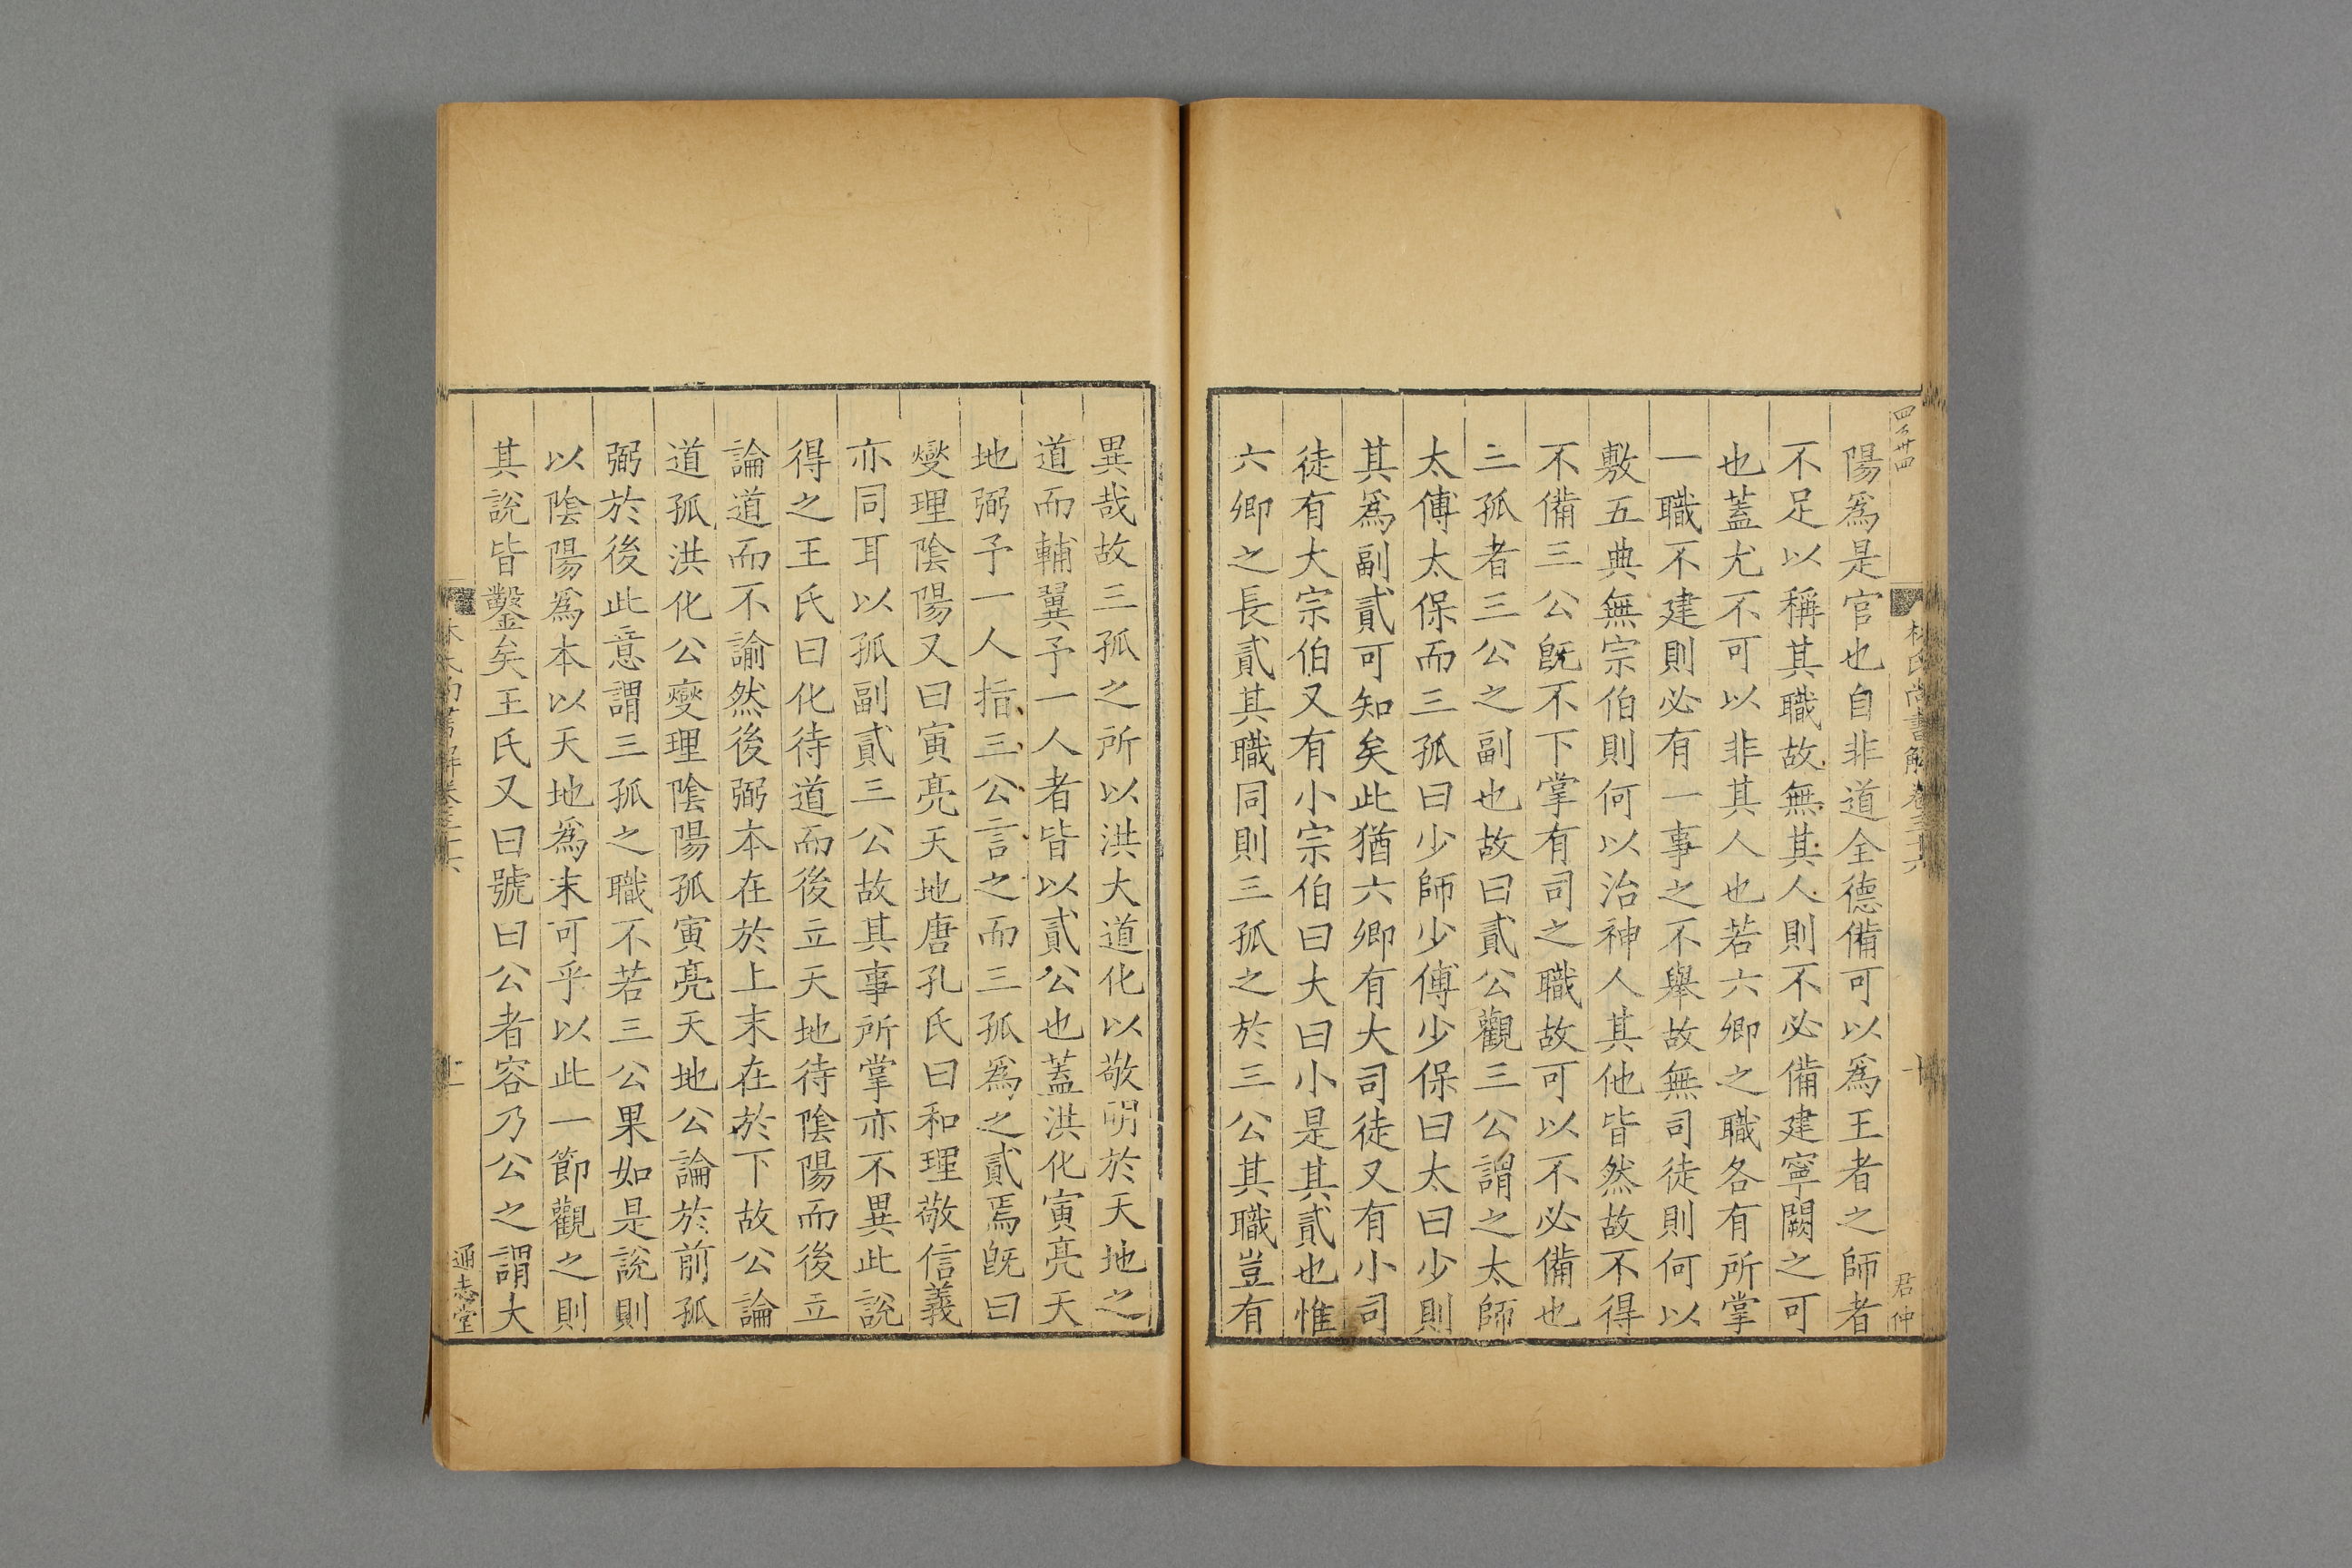 陽爲是官也自非道全德備可以爲王者之師者
不足以稱其職故無其人則不必備建寧闕之可
也蓋尤不可以非其人也若六卿之職各有所掌
一職不建則必有一事之不舉故無司徒則何以
敷五典無宗伯則何以治神人其他皆然故不得
不備三公旣不下掌有司之職故可以不必備也
三孤者三公之副也故曰貳公觀三公謂之太師
太傅太保而三孤曰少師少傅少保曰太曰少則
其爲副貳可知矣此猶六卿有大司徒又有小司
徒有大宗伯又有小宗伯曰大曰小是其貳也惟
六卿之長貳其職同則三孤之於三公其職豈有
君仲
異哉故三孤之所以洪大道化以敬明於天地之
道而輔翼予一人者皆以貳公也蓋洪化寅亮天
地弼予一人指三公言之而三孤爲之貳焉旣曰
燮理陰陽又曰寅亮天地唐孔氏曰和理敬信義
亦同耳以孤副貳三公故其事所掌亦不異此說
得之王氏曰化待道而後立天地待陰陽而後立
論道而不諭然後弼本在於上末在於下故公論
道孤洪化公燮理陰陽孤寅亮天地公論於前孤
弼於後此意謂三孤之職不若三公果如是說則
以陰陽爲本以天地爲末可乎以此一節觀之則
其說皆鑿矣王氏又曰號曰公者容乃公之謂大
通志堂